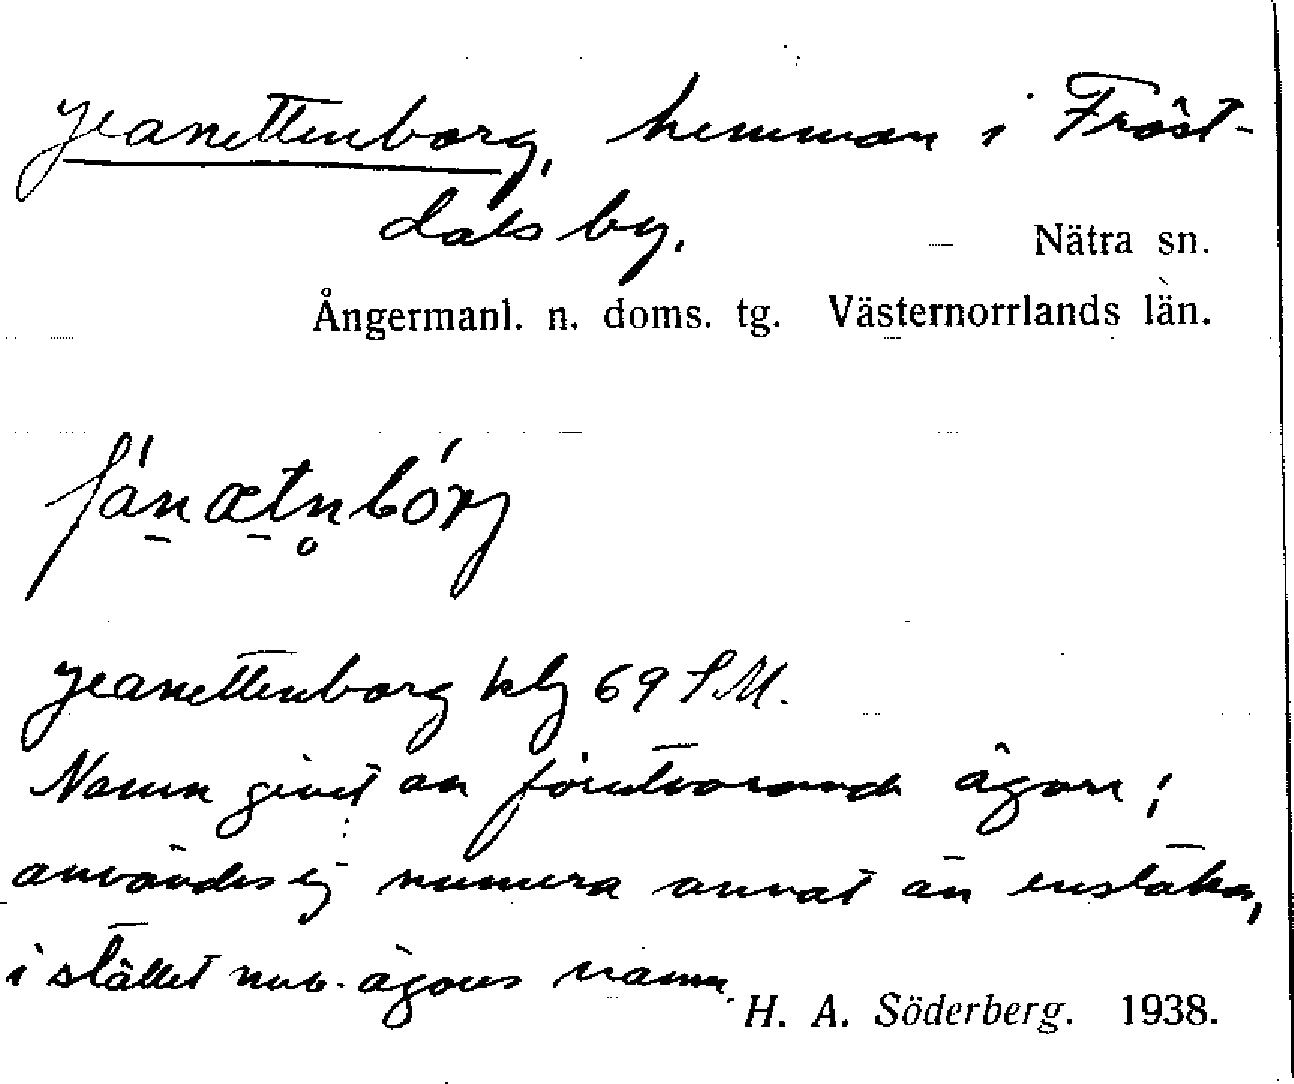 Jeanettenborg, hemman i Fröst-
dals by.
– Nätra sn.
Ångermanl. n. doms. tg. Västernorrlands län.
Jeanettenborg klj 69 SM.
Namn givet av förutvarande ägare;
användes ej numera annat än enstaka,
i stället nuv. ägares namn
H. A. Söderberg. 1938.